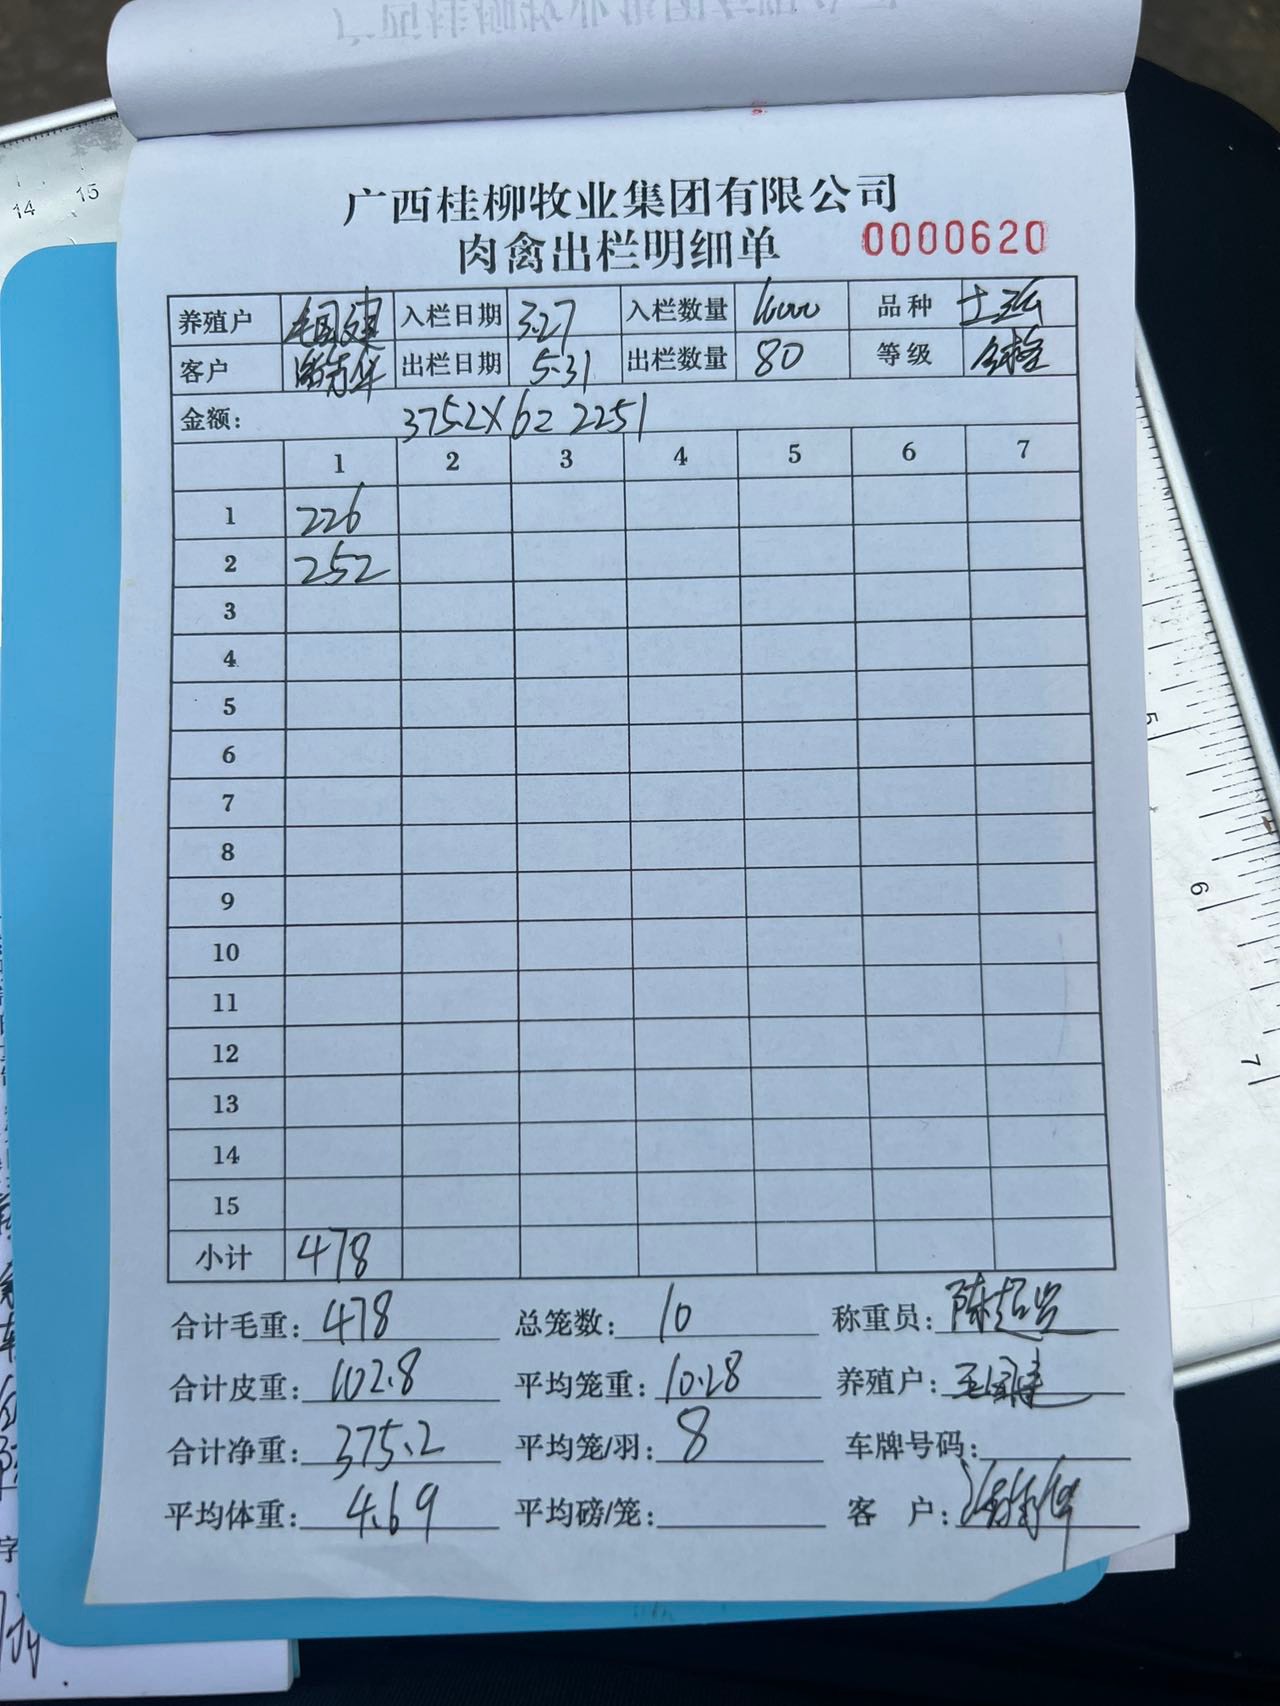 广西桂柳牧业集团有限公司
肉禽出栏明细单 0000620
养殖户 入栏日期 3.27 入栏数量 1600 品种
客户 出栏日期 5.31 出栏数量 80 等级
金额: 375.2×6= 2251
1 2 3 4 5 6 7
1 226
2 252
3
4
5
6
7
8
9
10
11
12
13
14
15
小计 478
合计毛重: 478 总笼数: 10 称重员:
合计皮重: 102.8 平均笼重: 10.28 养殖户:
合计净重: 375.2 平均笼/羽: 8 车牌号码:
平均体重: 4.69 平均磅/笼: 客 户:
14 15
5
6
7